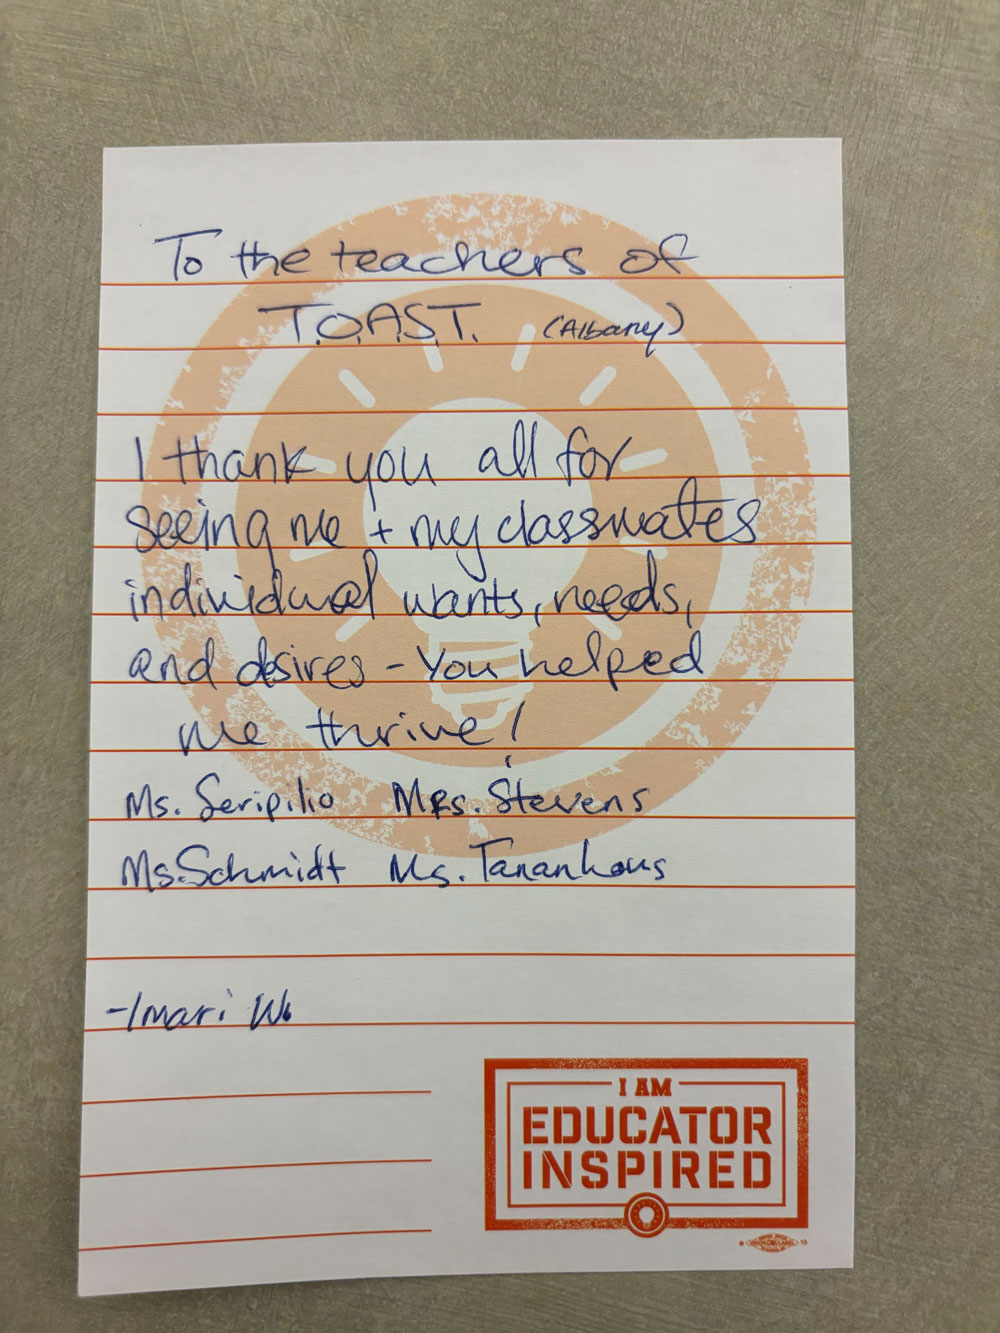 To the teachers of
T.O.A.S.T. (Albany)
I thank you all for
seeing me + my classmates
individual wants, needs,
and desires - You helped
me thrive!
Ms. Seripilio Mrs. Stevens
Ms. Schmidt Ms. Tanankous
-Imari W.
I AM
EDUCATOR
INSPIRED